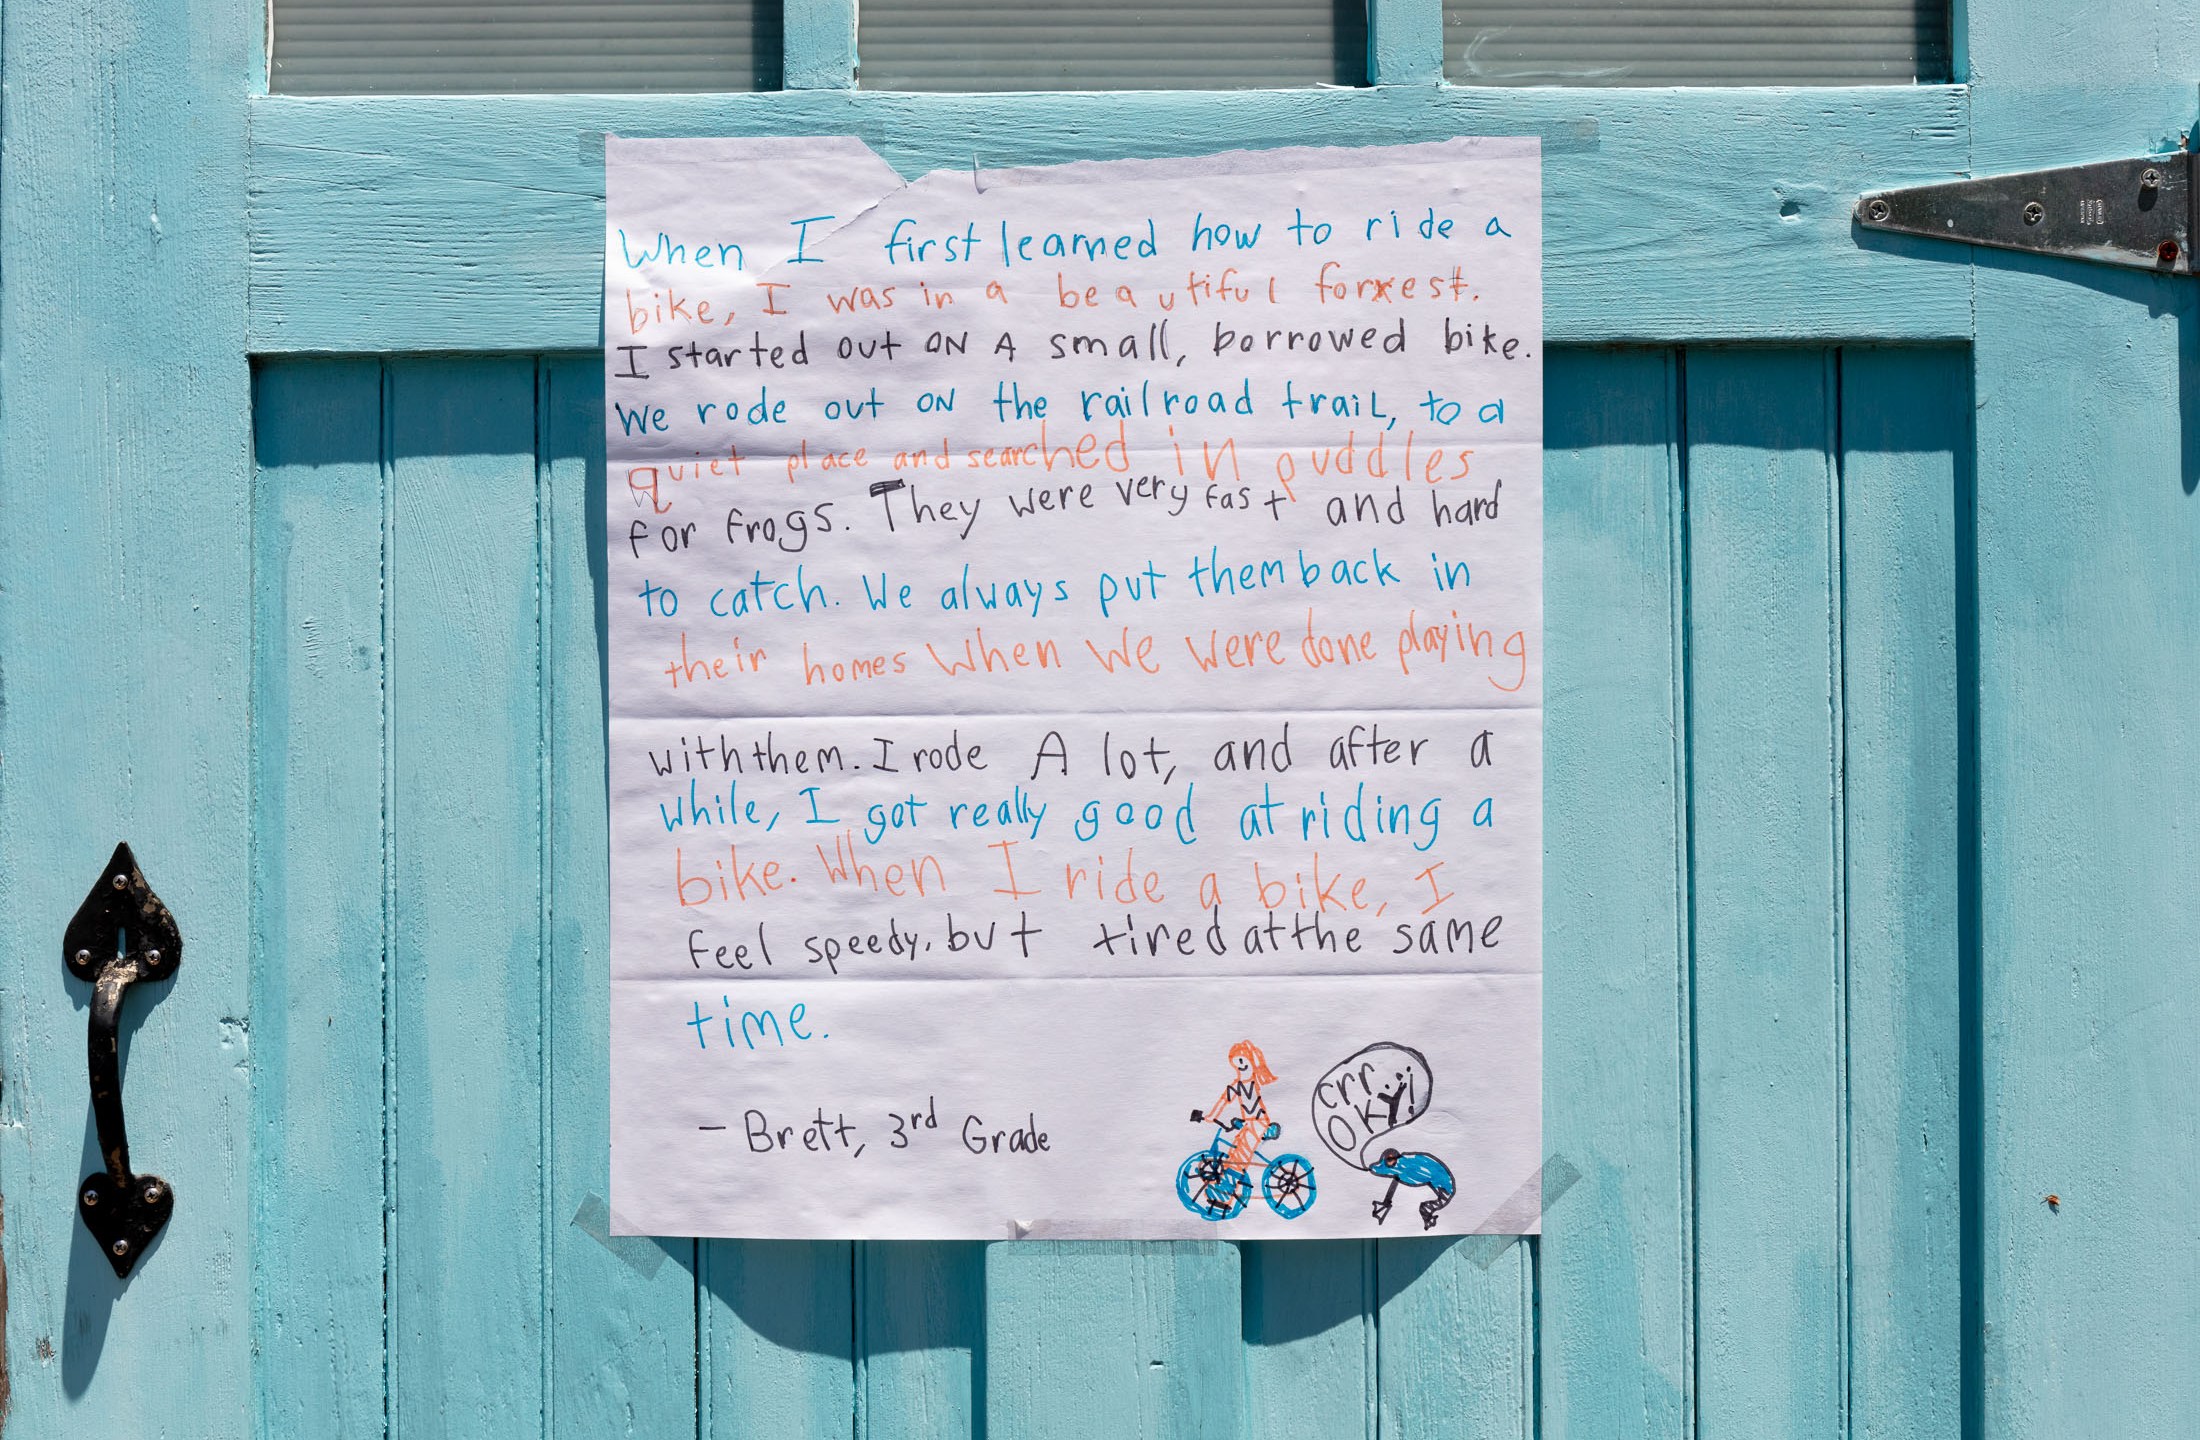 When I first learned how to ride a
bike, I was in a beautiful forxest.
I started out ON A small, borrowed bike.
We rode out ON the railroad trail, to a
quiet place and searched in puddles
for frogs. They were very fast and hard
to catch. We always put them back in
their homes when we were done playing
with them. I rode A lot, and after a
while, I got really good at riding a
bike. When I ride a bike, I
feel speedy, but tired at the same
time.
- Brett, 3rd Grade
crr
OKy!